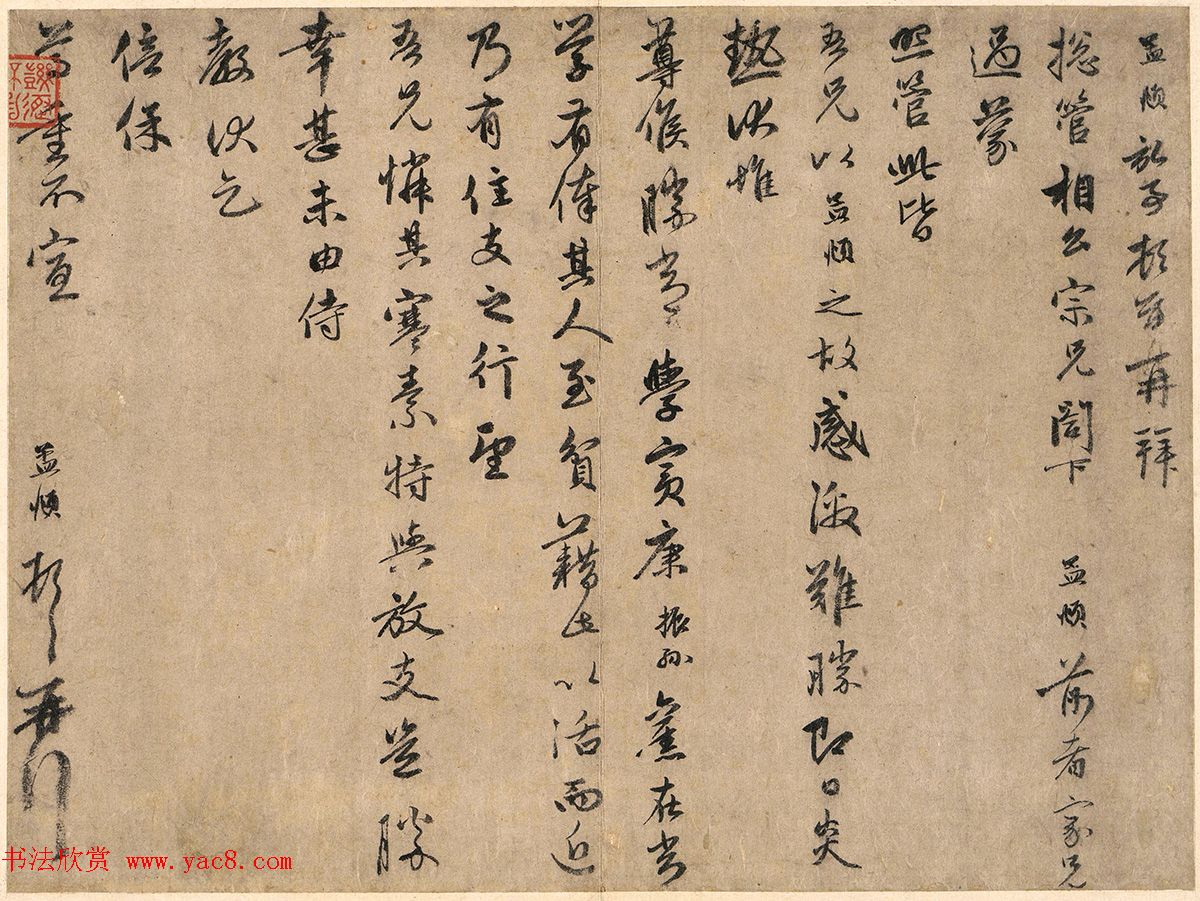 孟頫拜手頓首再拜
總管相公宗兄閣下 孟頫前者家兄
過蒙
照管此皆
吾兄以孟頫之故感激難勝即日炎
熱伏惟
尊候勝常學賓康振孫舊在常
學有俸其人至貧藉此以活而近
乃有住支之行望
吾兄憐其寒素特與放支豈勝
幸甚未由侍
教伏乞
倍保
尊重不宣
孟頫頓首再拜
书法欣赏 www.yac8.com